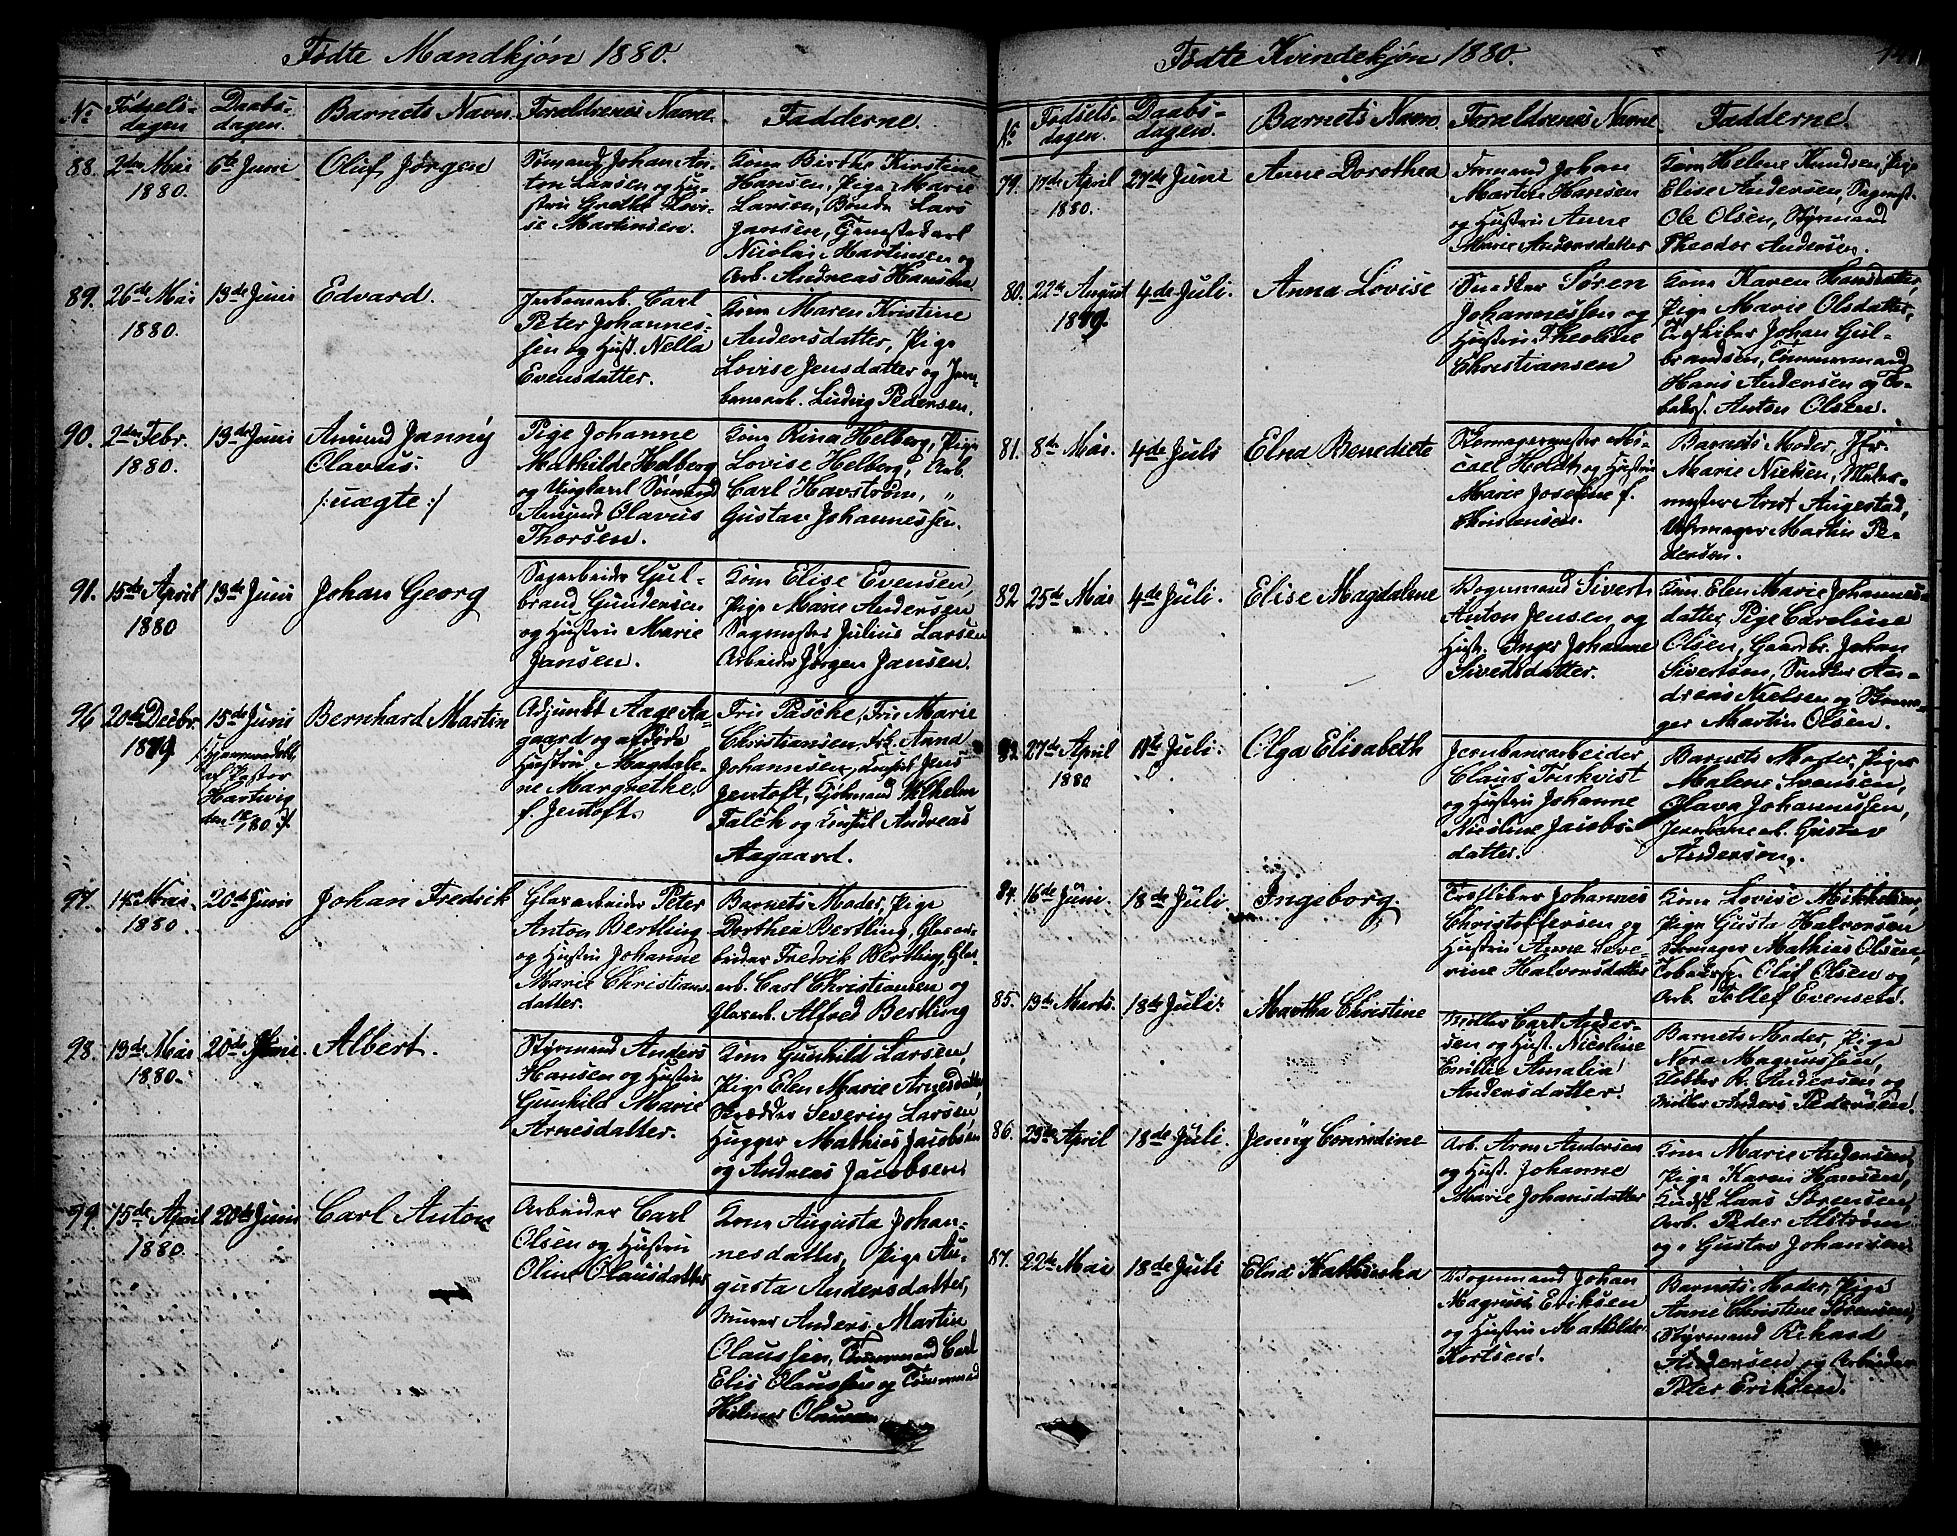 Fødte Mandkjøn 1880.
No Fødsels-dagen Daabs-dagen. Barnets Navn. Foreldrenes Navne. Fadderne.
88. 2den Mai 1880. 6te Juni Oluf Jørgen
Sømand Johan An-
ton Larsen og Hu-
stru Grethe Lovi-
se Martinsen.
Kone Birthe Kirstine
Hansen, Pige Marie
Larsen, Bonde Lars
Jansen,
Nicolai Martinsen og
Arb. Andreas Hansen
89. 26de Mai 1880. 13de Juni Edvard.
Jerbanearb. Carl
Peter Johannes-
sen og Hust. Nella
Evensdatter.
Kone Maren Kristine
Andersdatter, Pige
Lovise Jensdatter og Jern-
banearb. Ludvig Pedersen.
90. 2den Febr. 1880. 13de Juni Amund Janny
Olavus.
/: uægte :/
Pige Johanne
Mathilde Helberg
og Ungkarl Sømand
Amund Olavus
Thorsen.
Kone Rina Helberg, Pige
Lovise Helberg, Arb.
Carl Havstrøm, "
Gustav Johannessen.
91. 15de April 1880 13de Juni Johan Georg
Sagarbeider Gul-
brand Gundersen
og Hustru Marie
Jansen.
Kone Elise Evensen,
Pige Marie Andersen
Sagmester Julius Larsen
Arbeider Jørgen Jansen.
96 20de Decbr. 1879 15de Juni Bernhard Martin
/: Hjemmedøbt
af Pastor
Hartvig
den /80 :/.
Adjunkt Aage Aa-
gaard og afdøde
Hustru Magdale-
ne Margrethe
f. Jentoft.
Fru Pasche, Fru Marie
Christiansen, Frk. Anna
Johannsen, Konsul Jens
Jentoft, Kjøbmand Vilhelm
Falck og Konsul Andreas
Aagaard.
97. 14de Mai 1880. 20de Juni Johan Fredrik
Glasarbeider Peter
Anton Bertling
og Hustru Johanne
Marie Christians-
datter.
Barnets Moder, Pige
Dorthea Bertling, Glasar-
beider Fredrik Bertling, Glas-
arb. Carl Christiansen og
Glasarb. Alfred Bertling
98. 13de Mai 1880. 20de Juni Albert.
Styrmand Anders
Hansen og Hustru
Gunhild Marie
Arnesdatter.
Kone Gunhild Larsen,
Pige Elen Marie Arnesdatter,
Skrædder Severin Larsen,
Hugger Mathias Jacobsen
og Andreas Jacobsen.
99. 15de April 1880. 20de Juni Carl Anton
Arbeider Carl
Olsen og Hustru
Oline Olausdatter
Kone Augusta Johan-
nesdatter, Pige Au-
gusta Andersdatter,
Murer Anders Martin
Olaussen, Tømmermand Carl
Elis Olaussen og Tømmermand
Hilmer Olaussen
Fødte Kvindekjøn 1880.
No Fødsels-dagen. Daabs-dagen. Barnets Navn. Foreldrenes Navne. Fadderne.
79. 17de April 1880. 27de Juni Anne Dorothea
Formand Johan
Martin Hansen
og Hustru Anne
Marie Andersdatter
Kone Helene Knudsen, Pige
Elise Andersen, Sagmest.
Ole Olsen, Styrmand
Theodor Andersen.
80. 22de August 1879. 4de Juli. Anna Lovise
Snedker Søren
Johannessen og
Hustru Theoline
Christiansen
Kone Karen Hansdatter,
Pige Marie Olsdatter,
Træsliber Johan Gul-
brandsen, Tømmermand
Hans Andersen og To-
baksf. Anton Olsen.
81. 8de Mai. 4de Juli Elna Benedicte
Skomagermester Mi-
cael Holdt og Hustru
Marie Josefine f.
Christensen.
Barnets Moder, Jfr.
Marie Nielsen, Maler-
mester Arnt Augestad,
Uhrmager Martin Pe-
dersen.
82 25de Mai 4de Juli. Elise Magdalene
Vognmand Sivert
Anton Jensen og
Hust. Inger Johanne
Sivertsdatter.
Kone Elen Marie Johannes-
datter, Pige Caroline
Olsen, Gaardbr. Johan
Sivertsen, Snedker An-
dreas Nielsen og Skoma-
ger Martin Olsen.
83. 27de April 1880 11te Juli. Olga Elisabeth
Jernbanearbeider
Claus Tornkvist
og Hustru Johanne
Nicoline Jacobs-
datter.
Barnets Moder, Piger
Malene Svensen,
Olava Johannessen,
Jernbanearb. Gustav
Anderson.
84. 16de Juni. 18de Juli Ingeborg.
Træsliber Johannes
Christoffersen og
Hustru Anne Seve-
rine Halvorsdatter
Kone Lovise Mikkelsen,
Pige Gusta Halvorsen
Skomager Mathias Olsen,
Tobaksf. Oluf Olsen og
Arb. Tollef Evensen.
85. 13de Marts. 18de Juli. Martha Christine
Møller Carl Ander-
sen og Hust. Nicoline
Emilie Amalia
Andersdatter.
Barnets Moder, Pige
Nora Magnussen,
R. Andersen og
Møller Anders Pedersen.
86. 23de April 18de Juli. Jenny Conradine
Arb. Aron Andersen
og Hust. Johanne
Marie Johansdatter
Kone Marie Andersen,
Pige Karen Hansen,
Kudsk Lars Sørensen,
Arb. Peder Alstrøm
og " Gustav Johansen.
87. 22de Mai 18de Juli Elna Kathinka
Vognmand Johan
Magnus Eriksen
og Hustru Mathilde
Kortsen.
Barnets Moder, Pige
Anne Christine Sørensen,
Styrmand Rikard
Andersen og Arbeider
Peter Eriksen.